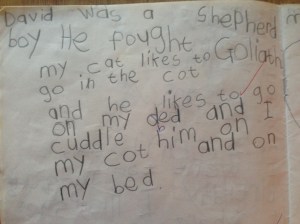 David was a Shepherd
boy He fought Goliath
my cat likes to
go in the cot
and he likes to go
on my ded and I
cuddle him on
my cot and on
my bed.